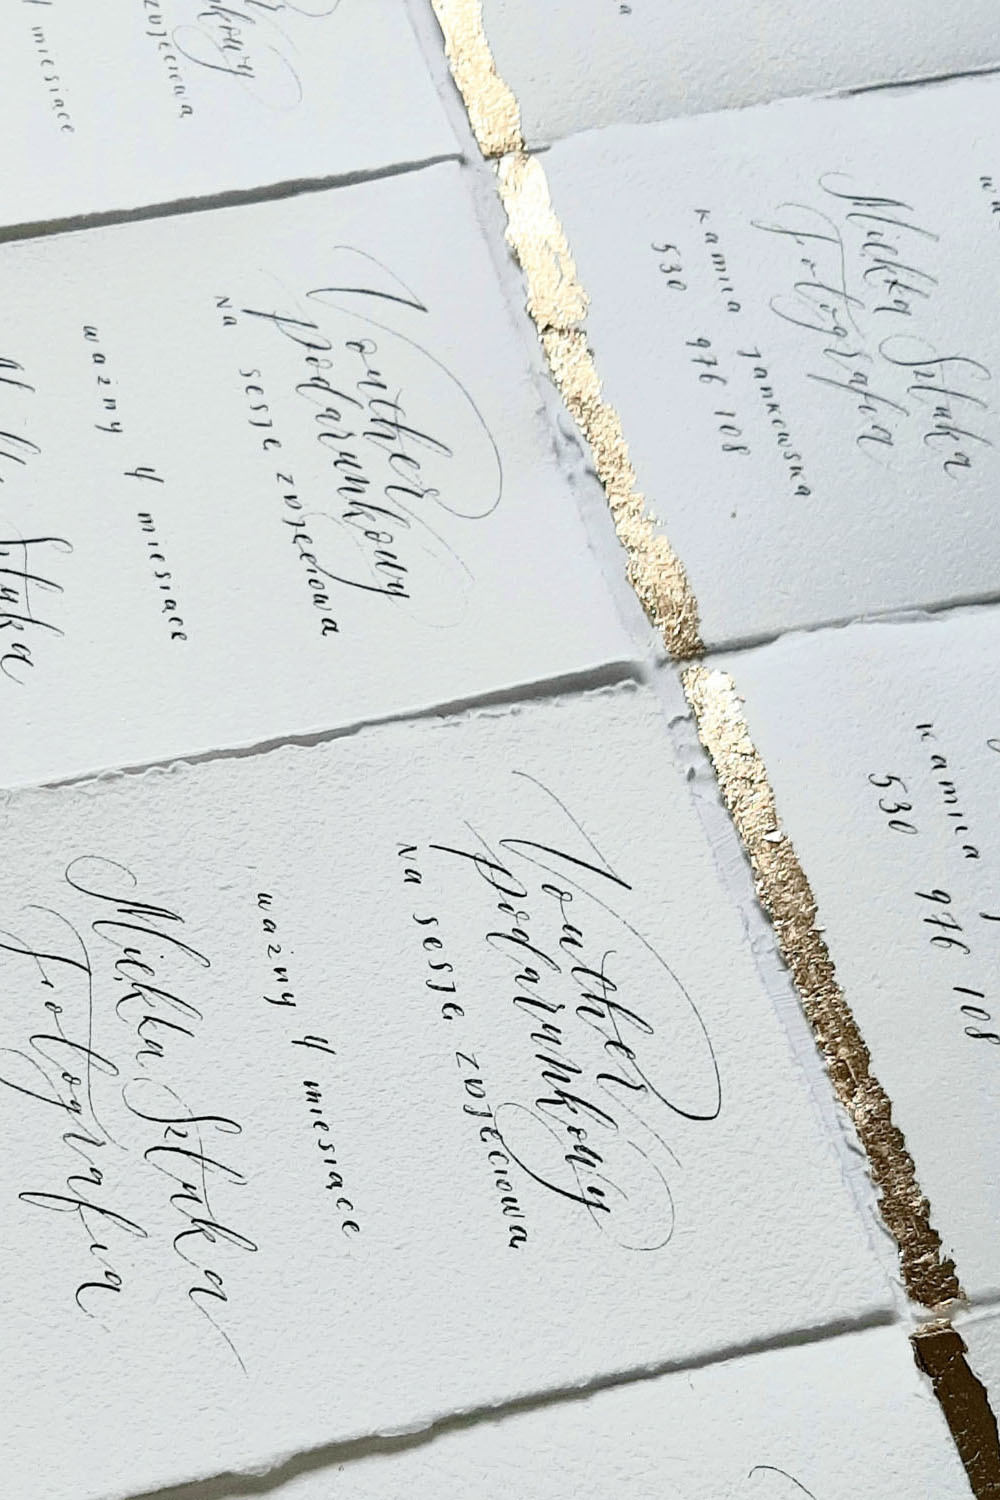 miesiące
Voucher
podarunkowy
na sesję zdjęciową
ważny 4 miesiące
Sztuka
Miękka Sztuka
Fotografia
Kamila Jankowska
530 976 108
Voucher
podarunkowy
na sesję zdjęciową
ważny 4 miesiące
Miękka Sztuka
Fotografia
Kamila
530 976 108